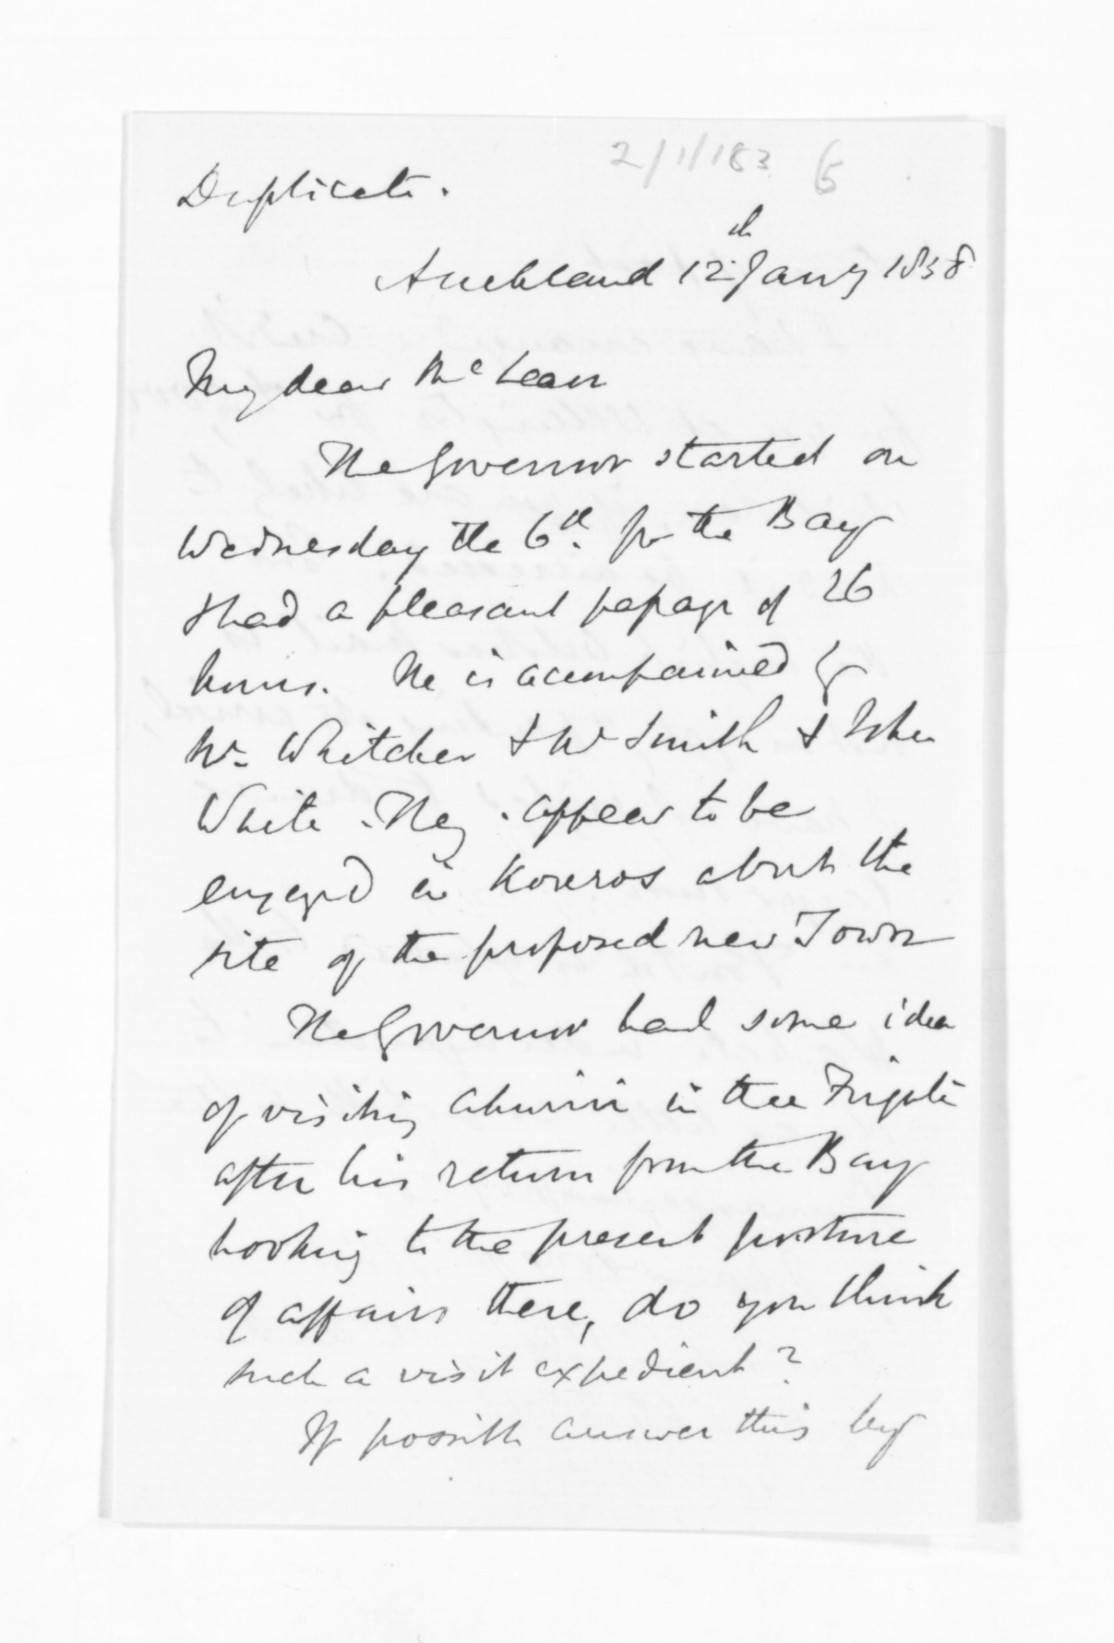 2/1/183 5
Duplicate.
Auckland 12th Jany 1858
My dear McLean
The Governor started on
Wednesday the 6th. for the Bay
& had a pleasant passage of 26
hours. He is accompanied by
Mr. Whitaker & Mr Smith & John
White. They appear to be
engaged in Koreros about the
site of the proposed new Town
The Governor had some idea
of visiting Ahuriri in the Frigate
after his return from the Bay
Looking to the present posture
of affairs there, do you think
such a visit expedient?
If possible answer this by